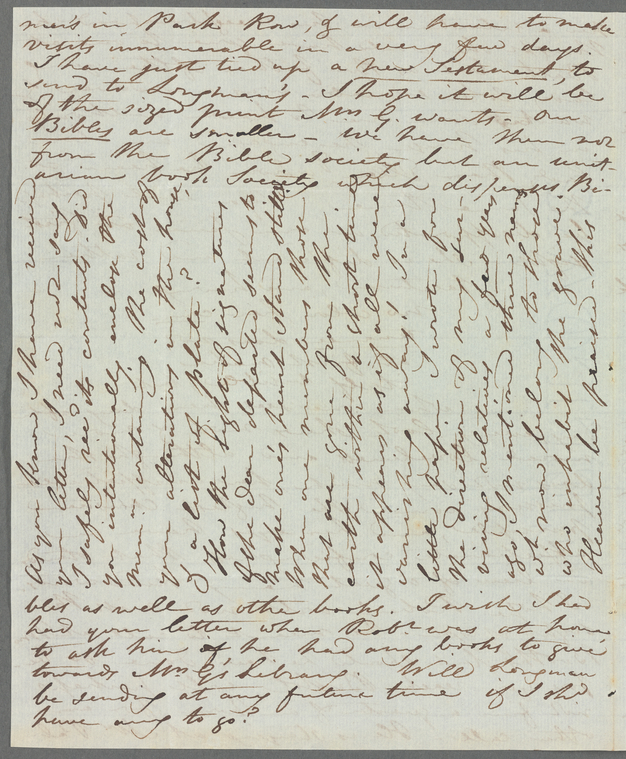 mer's in Park Row, & will have to make
visits innumerable in a very few days.
I have just tied up a new Testament, to
send to Longman's - I hope it will be
of the sized print Mrs G. wants - Our
Bibles are smaller - we have them not
from the Bible society but an unit-
arian book Society which dispenses Bi-
bles as well as other books. I wish I had
had your letter when Robt was at home
to ask him if he had any books to give
towards Mrs G's Library. Will Longman
be sending at any future time if I shd
have any to go?
As you know I have received
your letter, I need not say
I safely see its contents. Did
you intentionally enclose the
mem: concerning the cost of
your alterations in the house,
& a list of plate?
How the sight of signatures
of the dear departed seems to
make one's heart stand still!
When one numbers those
that are gone from the
earth within a short time
it appears as if all were
vanishing away! In a
little paper I wrote for
the direction of my sur-
viving relatives a few years
ago, I mentioned three names
wh now belong to those
who inhabit the grave.
Heaven be praised - this